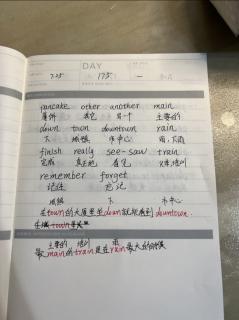 DAY
7.25 175 一
pancake other another main
薄饼 其它 另一个 主要的
down town downtown rain
下 城镇 市中心 雨,下雨
finish really see-saw train
完成 真正地 火车,培训
remember forget
记住 忘记
城镇 下 市中心
在town的大厦里坐down就能看到downtown.
主要的 培训 雨
最main的train是在rain最大的时候